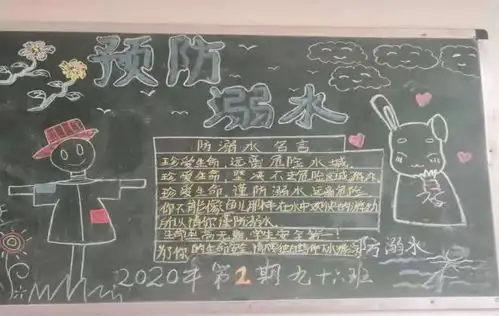 预防
溺水
防溺水名言
珍爱生命 远离危险水域
珍爱生命 坚决不去危险区域游泳
珍爱生命 谨防溺水 远离危险
你不能像鱼儿那样在水中欢快的游动
所以请你谨防溺水
生命至高无上 学生安全第一!
防溺水
2020年第1期九十六班